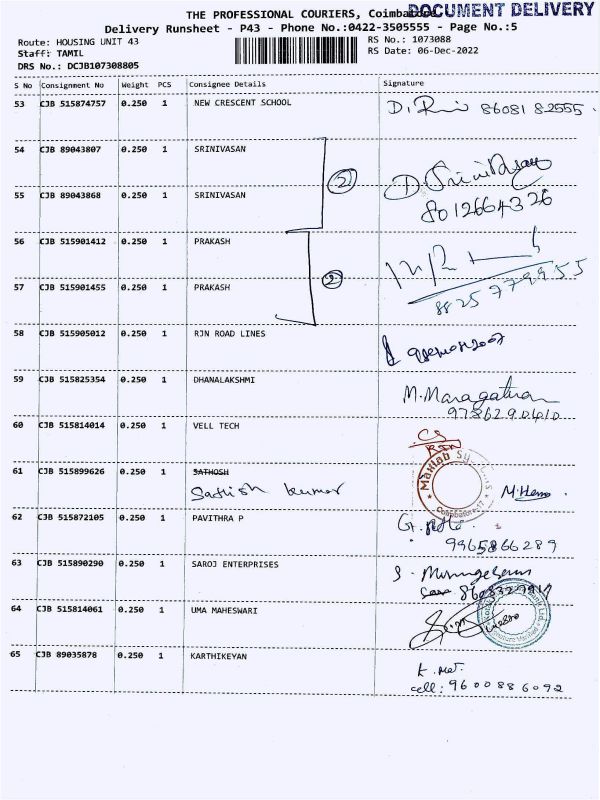 DOCUMENT DELIVERY
THE PROFESSIONAL COURIERS, Coimbatore
Delivery Runsheet - P43 - Phone No.:0422-3505555 - Page No.:5
Route: HOUSING UNIT 43 RS No.: 1073088
Staff: TAMIL RS Date: 06-Dec-2022
DRS No.: DCJB107308805
S No Consignment No Weight PCS Consignee Details Signature
53 CJB 515874757 0.250 1 NEW CRESCENT SCHOOL 86081 82555
54 CJB 89043807 0.250 1 SRINIVASAN
2
D. Srinivasan
55 CJB 89043868 0.250 1 SRINIVASAN 8012664326
56 CJB 515901412 0.250 1 PRAKASH
2
57 CJB 515901455 0.250 1 PRAKASH 8825779955
58 CJB 515905012 0.250 1 RJN ROAD LINES
59 CJB 515825354 0.250 1 DHANALAKSHMI M. Maragatham
9786290410
60 CJB 515814014 0.250 1 VELL TECH
61 CJB 515899626 0.250 1 SATHOSH
Sathish kumar
62 CJB 515872105 0.250 1 PAVITHRA P
9965866289
63 CJB 515890290 0.250 1 SAROJ ENTERPRISES
64 CJB 515814061 0.250 1 UMA MAHESWARI
65 CJB 89035878 0.250 1 KARTHIKEYAN
cell: 9600886092